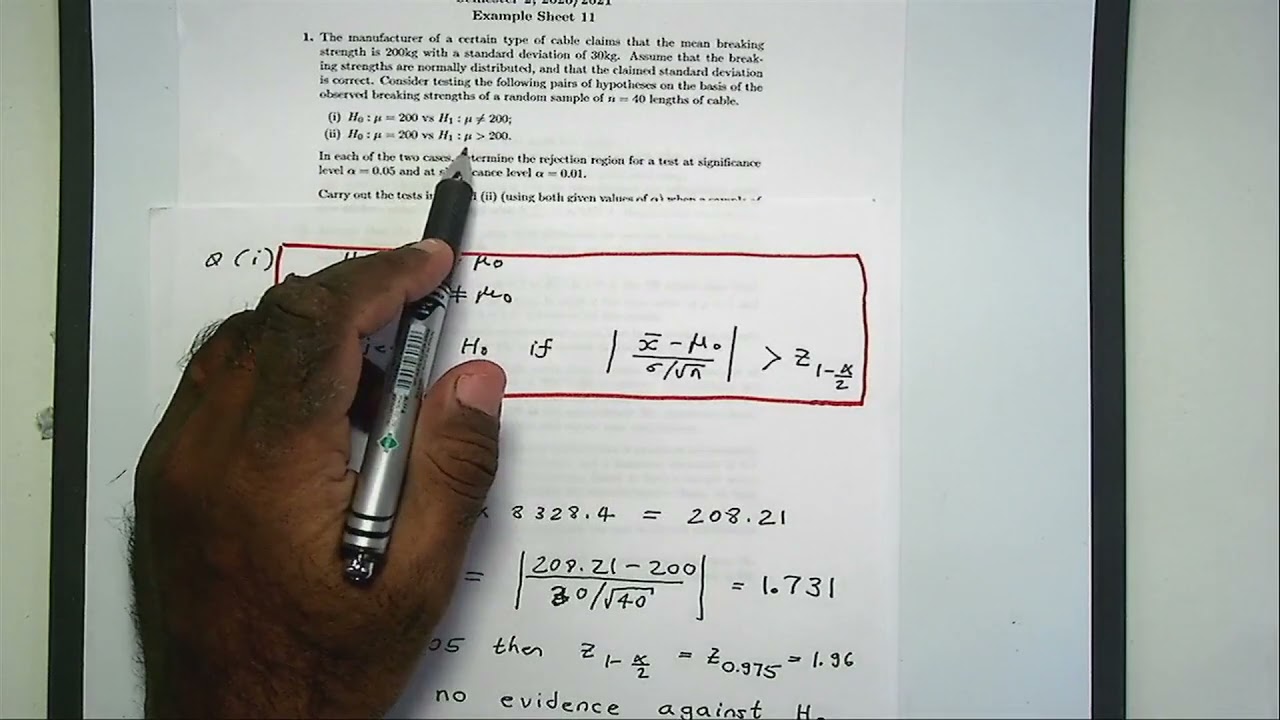 Semester 2, 2020/2021
Example Sheet 11
1. The manufacturer of a certain type of cable claims that the mean breaking
strength is 200kg with a standard deviation of 30kg. Assume that the break-
ing strengths are normally distributed, and that the claimed standard deviation
is correct. Consider testing the following pairs of hypotheses on the basis of the
observed breaking strengths of a random sample of n = 40 lengths of cable.
(i) H₀ : μ = 200 vs H₁ : μ ≠ 200;
(ii) H₀ : μ = 200 vs H₁ : μ > 200.
In each of the two cases, termine the rejection region for a test at significance
level α = 0.05 and at s cance level α = 0.01.
Carry out the tests in (ii) (using both given values of α) when a sample of
Q (i) : μ₀
≠ μ₀
H₀ if | x̄ - μ₀ / σ/√n | > z 1-α/2
8328.4 = 208.21
= | 208.21 - 200 / 30/√40 | = 1.731
05 then z 1-α/2 = z 0.975 = 1.96
no evidence against H₀